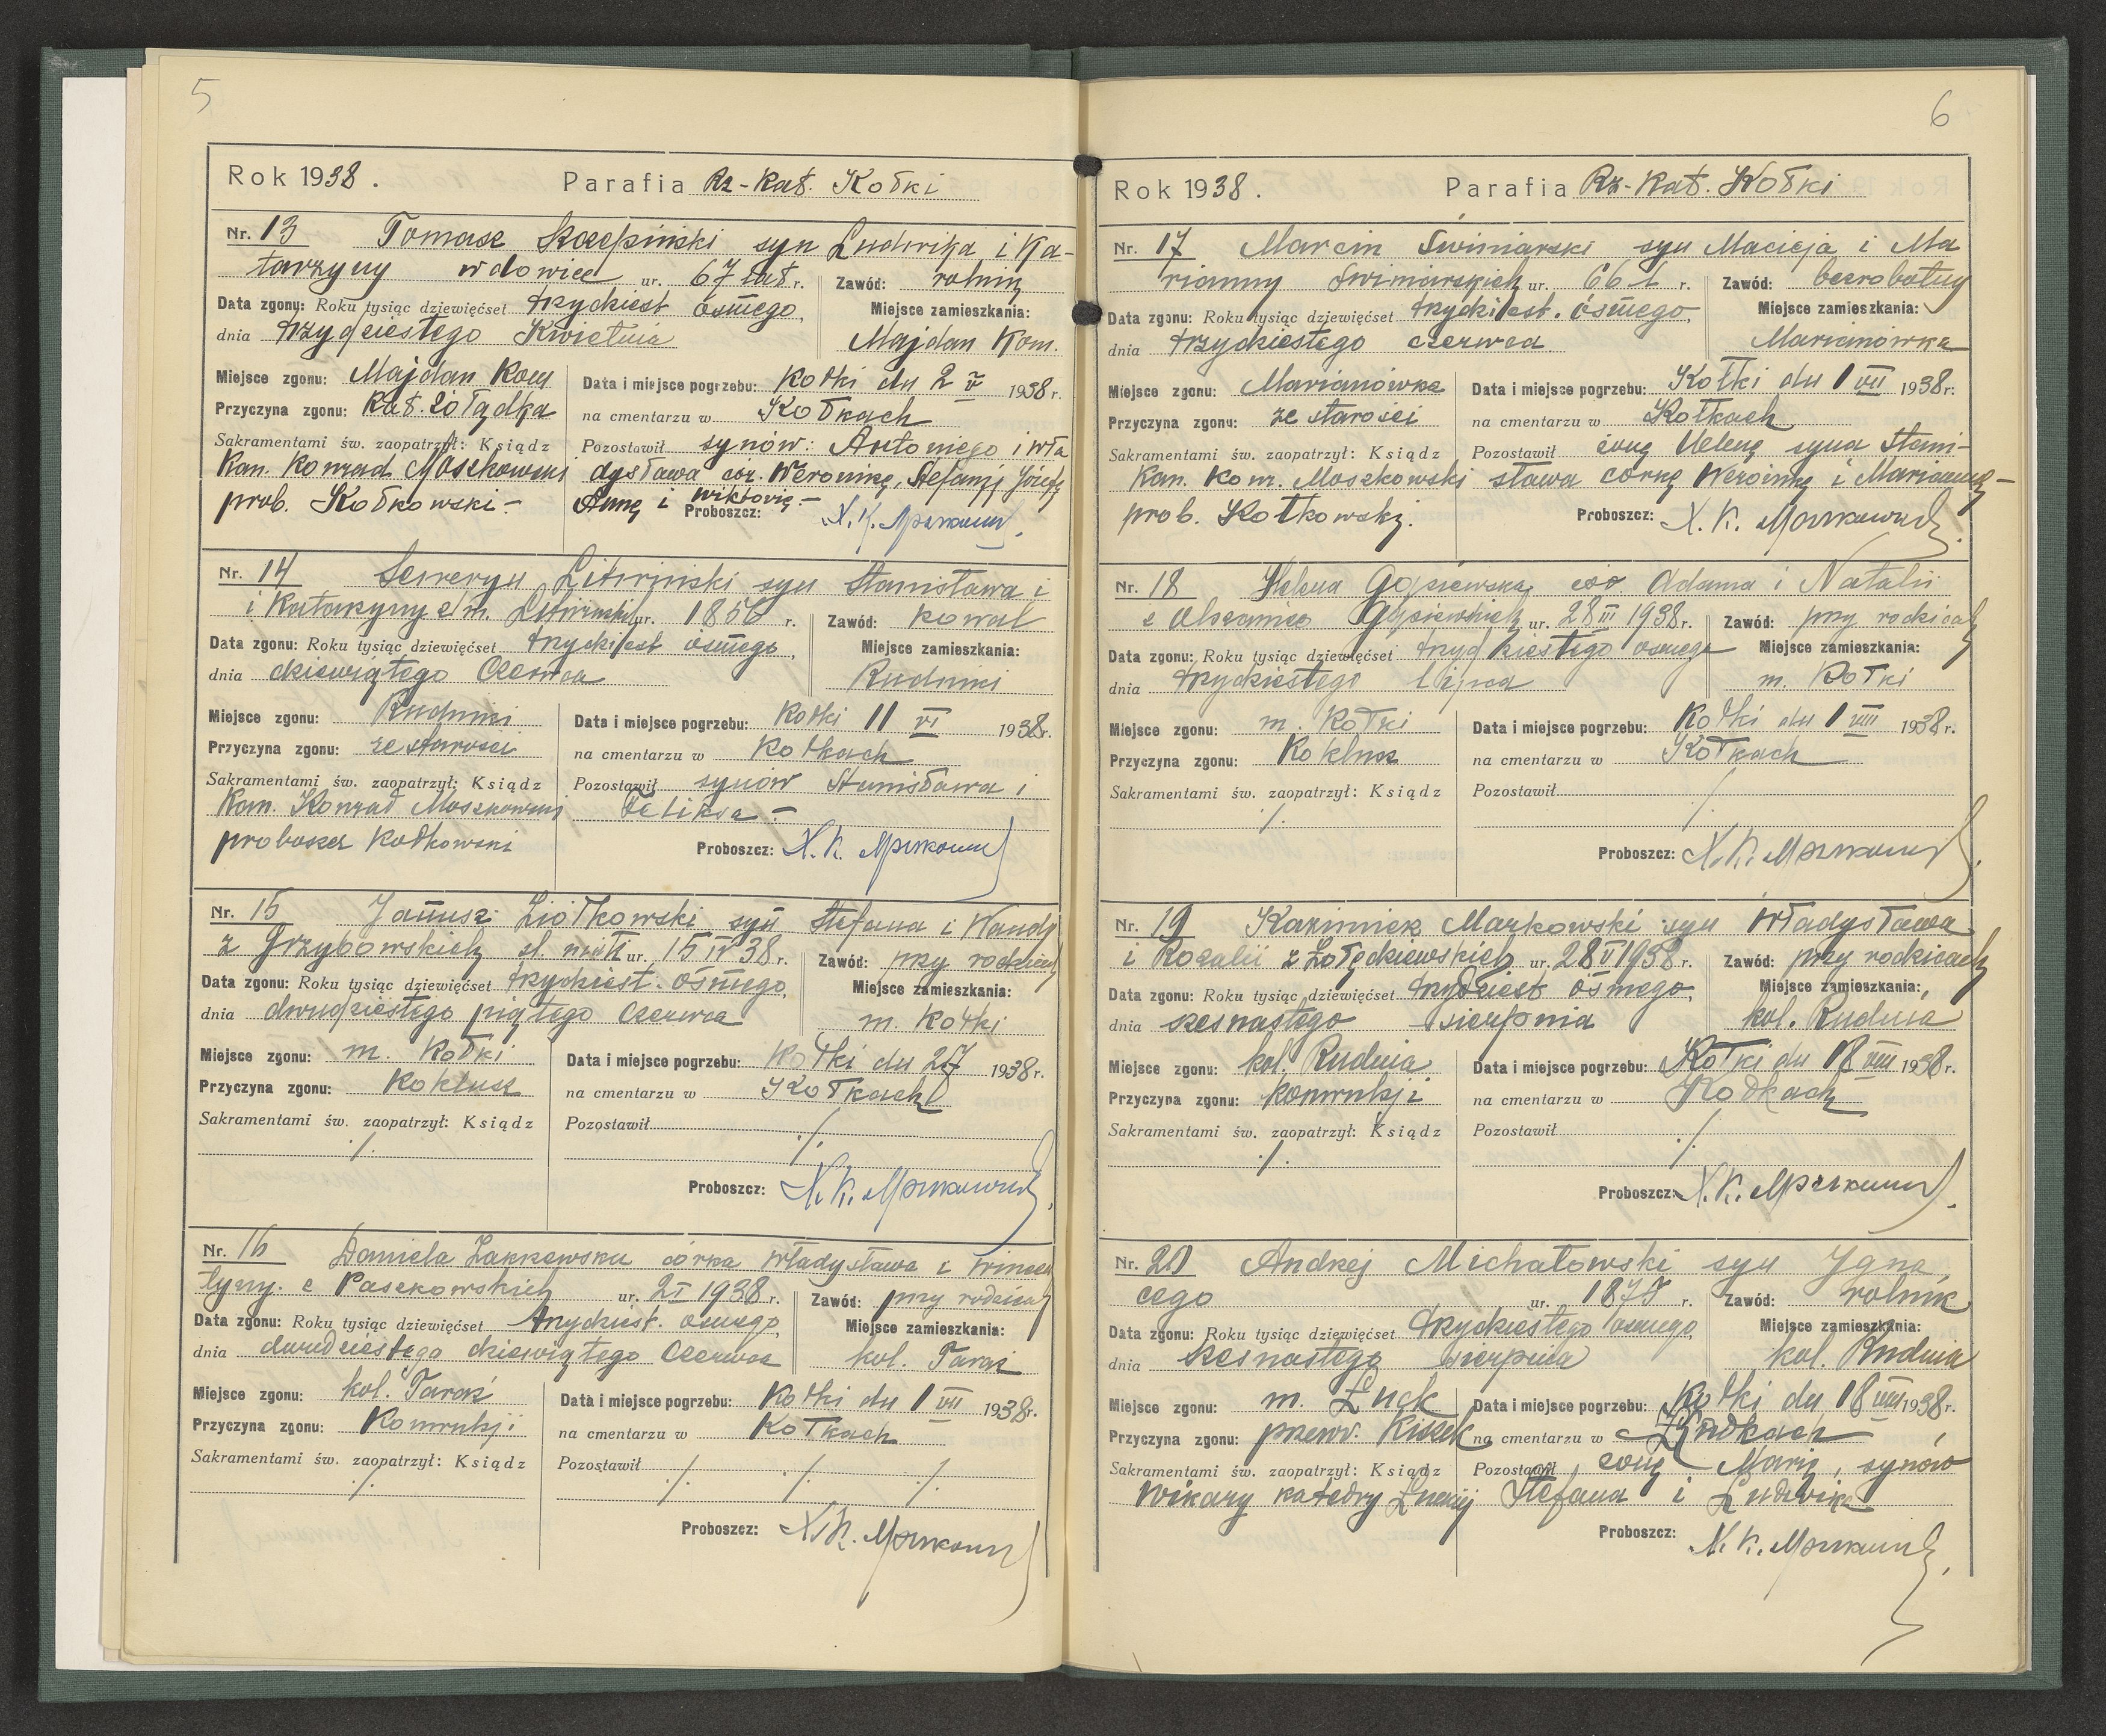 5
Rok 1938. Parafia Rz-Kat. Kołki
Nr. 13 Tomasz Szczepiński syn Ludwika i Ka-
tarzyny wdowiec ur. 67 lat r. Zawód: rolnik
Data zgonu: Roku tysiąc dziewięćset trzydziest ósmego,
Miejsce zamieszkania:
dnia trzydziestego Kwietnia Majdan Kom.
Miejsce zgonu: Majdan Kom Data i miejsce pogrzebu: Kołki dn 2 V 1938 r.
Przyczyna zgonu: Kat. żołądka na cmentarzu w Kołkach
Sakramentami św. zaopatrzył: Ksiądz Pozostawił synów: Antoniego i Wła
Kan. Konrad Moszkowski dysława cór. Weronikę, Stefanję Józefę
prob. Kołkowski - Annę i Wiktorię - Proboszcz: X. K. Moszkowski
Nr. 14 Seweryn Litwiński syn Stanisława i
i Katarzyny z m. Litwińskich ur. 1856 r. Zawód: Kowal
Data zgonu: Roku tysiąc dziewięćset trzydziest ósmego,
Miejsce zamieszkania:
dnia dziewiątego Czerwca Rudniki
Miejsce zgonu: Rudniki Data i miejsce pogrzebu: Kołki 11 VI 1938 r.
Przyczyna zgonu: ze starości na cmentarzu w Kołkach
Sakramentami św. zaopatrzył: Ksiądz Pozostawił synów Stanisława i
Kan. Konrad Moszkowski Feliksa -
proboszcz Kołkowski Proboszcz: X. K. Moszkowski
Nr. 15 Janusz Ziółkowski syn Stefana i Wandy
z Grzybowskich ur. 15 IV 38 r. Zawód: przy rodzicach
Data zgonu: Roku tysiąc dziewięćset trzydziest. ósmego,
Miejsce zamieszkania:
dnia dwudziestego piątego Czerwca m. Kołki
Miejsce zgonu: m. Kołki Data i miejsce pogrzebu: Kołki dn 27 1938 r.
Przyczyna zgonu: Koklusz na cmentarzu w Kołkach
Sakramentami św. zaopatrzył: Ksiądz Pozostawił
./. ./.
Proboszcz: X. K. Moszkowski
Nr. 16 Daniela Zakrzewska córka Władysława i Wincen
tyny. z Paszkowskich ur. 2 I 1938 r. Zawód: przy rodzicach
Data zgonu: Roku tysiąc dziewięćset trzydziest. ósmego,
Miejsce zamieszkania:
dnia dwudziestego dziewiątego Czerwca kol. Taraż
Miejsce zgonu: kol. Taraż Data i miejsce pogrzebu: Kołki dn 1 VII 1938 r.
Przyczyna zgonu: Konwulsji na cmentarzu w Kołkach
Sakramentami św. zaopatrzył: Ksiądz Pozostawił ./. ./. ./.
./.
Proboszcz: X. K. Moszkowski
6
Rok 1938. Parafia Rz-Kat. Kołki
Nr. 17 Marcin Świniarski syn Macieja i Ma
rianny Świniarskich ur. 66 l r. Zawód: bezrobotny
Data zgonu: Roku tysiąc dziewięćset trzydziest. ósmego,
Miejsce zamieszkania:
dnia trzydziestego czerwca. Marianówka
Miejsce zgonu: Marianówka Data i miejsce pogrzebu: Kołki dn 1 VII 1938 r.
Przyczyna zgonu: ze starości na cmentarzu w Kołkach
Sakramentami św. zaopatrzył: Ksiądz Pozostawił żonę Helenę syna Stani-
Kan. Konr. Moszkowski sława córkę Weroinkę i Mariannę -
prob. Kołkowski. Proboszcz: X. K. Moszkowski
Nr. 18 Helena Gąsiewska cór. Adama i Natalii
z Gąsiewskich ur. 28 III 1938 r. Zawód: przy rodzicach
Data zgonu: Roku tysiąc dziewięćset trzydziestego ósmego
Miejsce zamieszkania:
dnia trzydziestego lipca m. Kołki
Miejsce zgonu: m. Kołki Data i miejsce pogrzebu: Kołki dn 1 VIII 1938 r.
Przyczyna zgonu: Koklusz na cmentarzu w Kołkach
Sakramentami św. zaopatrzył: Ksiądz Pozostawił
./. ./.
Proboszcz: X. K. Moszkowski
Nr. 19 Kazimierz Markowski syn Władysława
i Rozalii z Żołędziewskich ur. 28 V 1938 r. Zawód: przy rodzicach
Data zgonu: Roku tysiąc dziewięćset trzydziest ósmego,
Miejsce zamieszkania:
dnia szesnastego sierpnia kol. Rudnia
Miejsce zgonu: kol. Rudnia Data i miejsce pogrzebu: Kołki dn 18 VIII 1938 r.
Przyczyna zgonu: konwulsji na cmentarzu w Kołkach
Sakramentami św. zaopatrzył: Ksiądz Pozostawił
./. ./.
Proboszcz: X. K. Moszkowski
Nr. 20 Andrzej Michałowski syn Igna
cego ur. 1878 r. Zawód: rolnik
Data zgonu: Roku tysiąc dziewięćset trzydziestego ósmego
Miejsce zamieszkania:
dnia szesnastego sierpnia kol. Rudnia
Miejsce zgonu: m. Łuck Data i miejsce pogrzebu: Kołki dn 18 VIII 1938 r.
Przyczyna zgonu: przewr. Kiszek na cmentarzu w
Sakramentami św. zaopatrzył: Ksiądz Pozostawił żonę Marię, synów
Wikary katedry Łuckiej Stefana i Ludwika
Proboszcz: X. K. Moszkowski